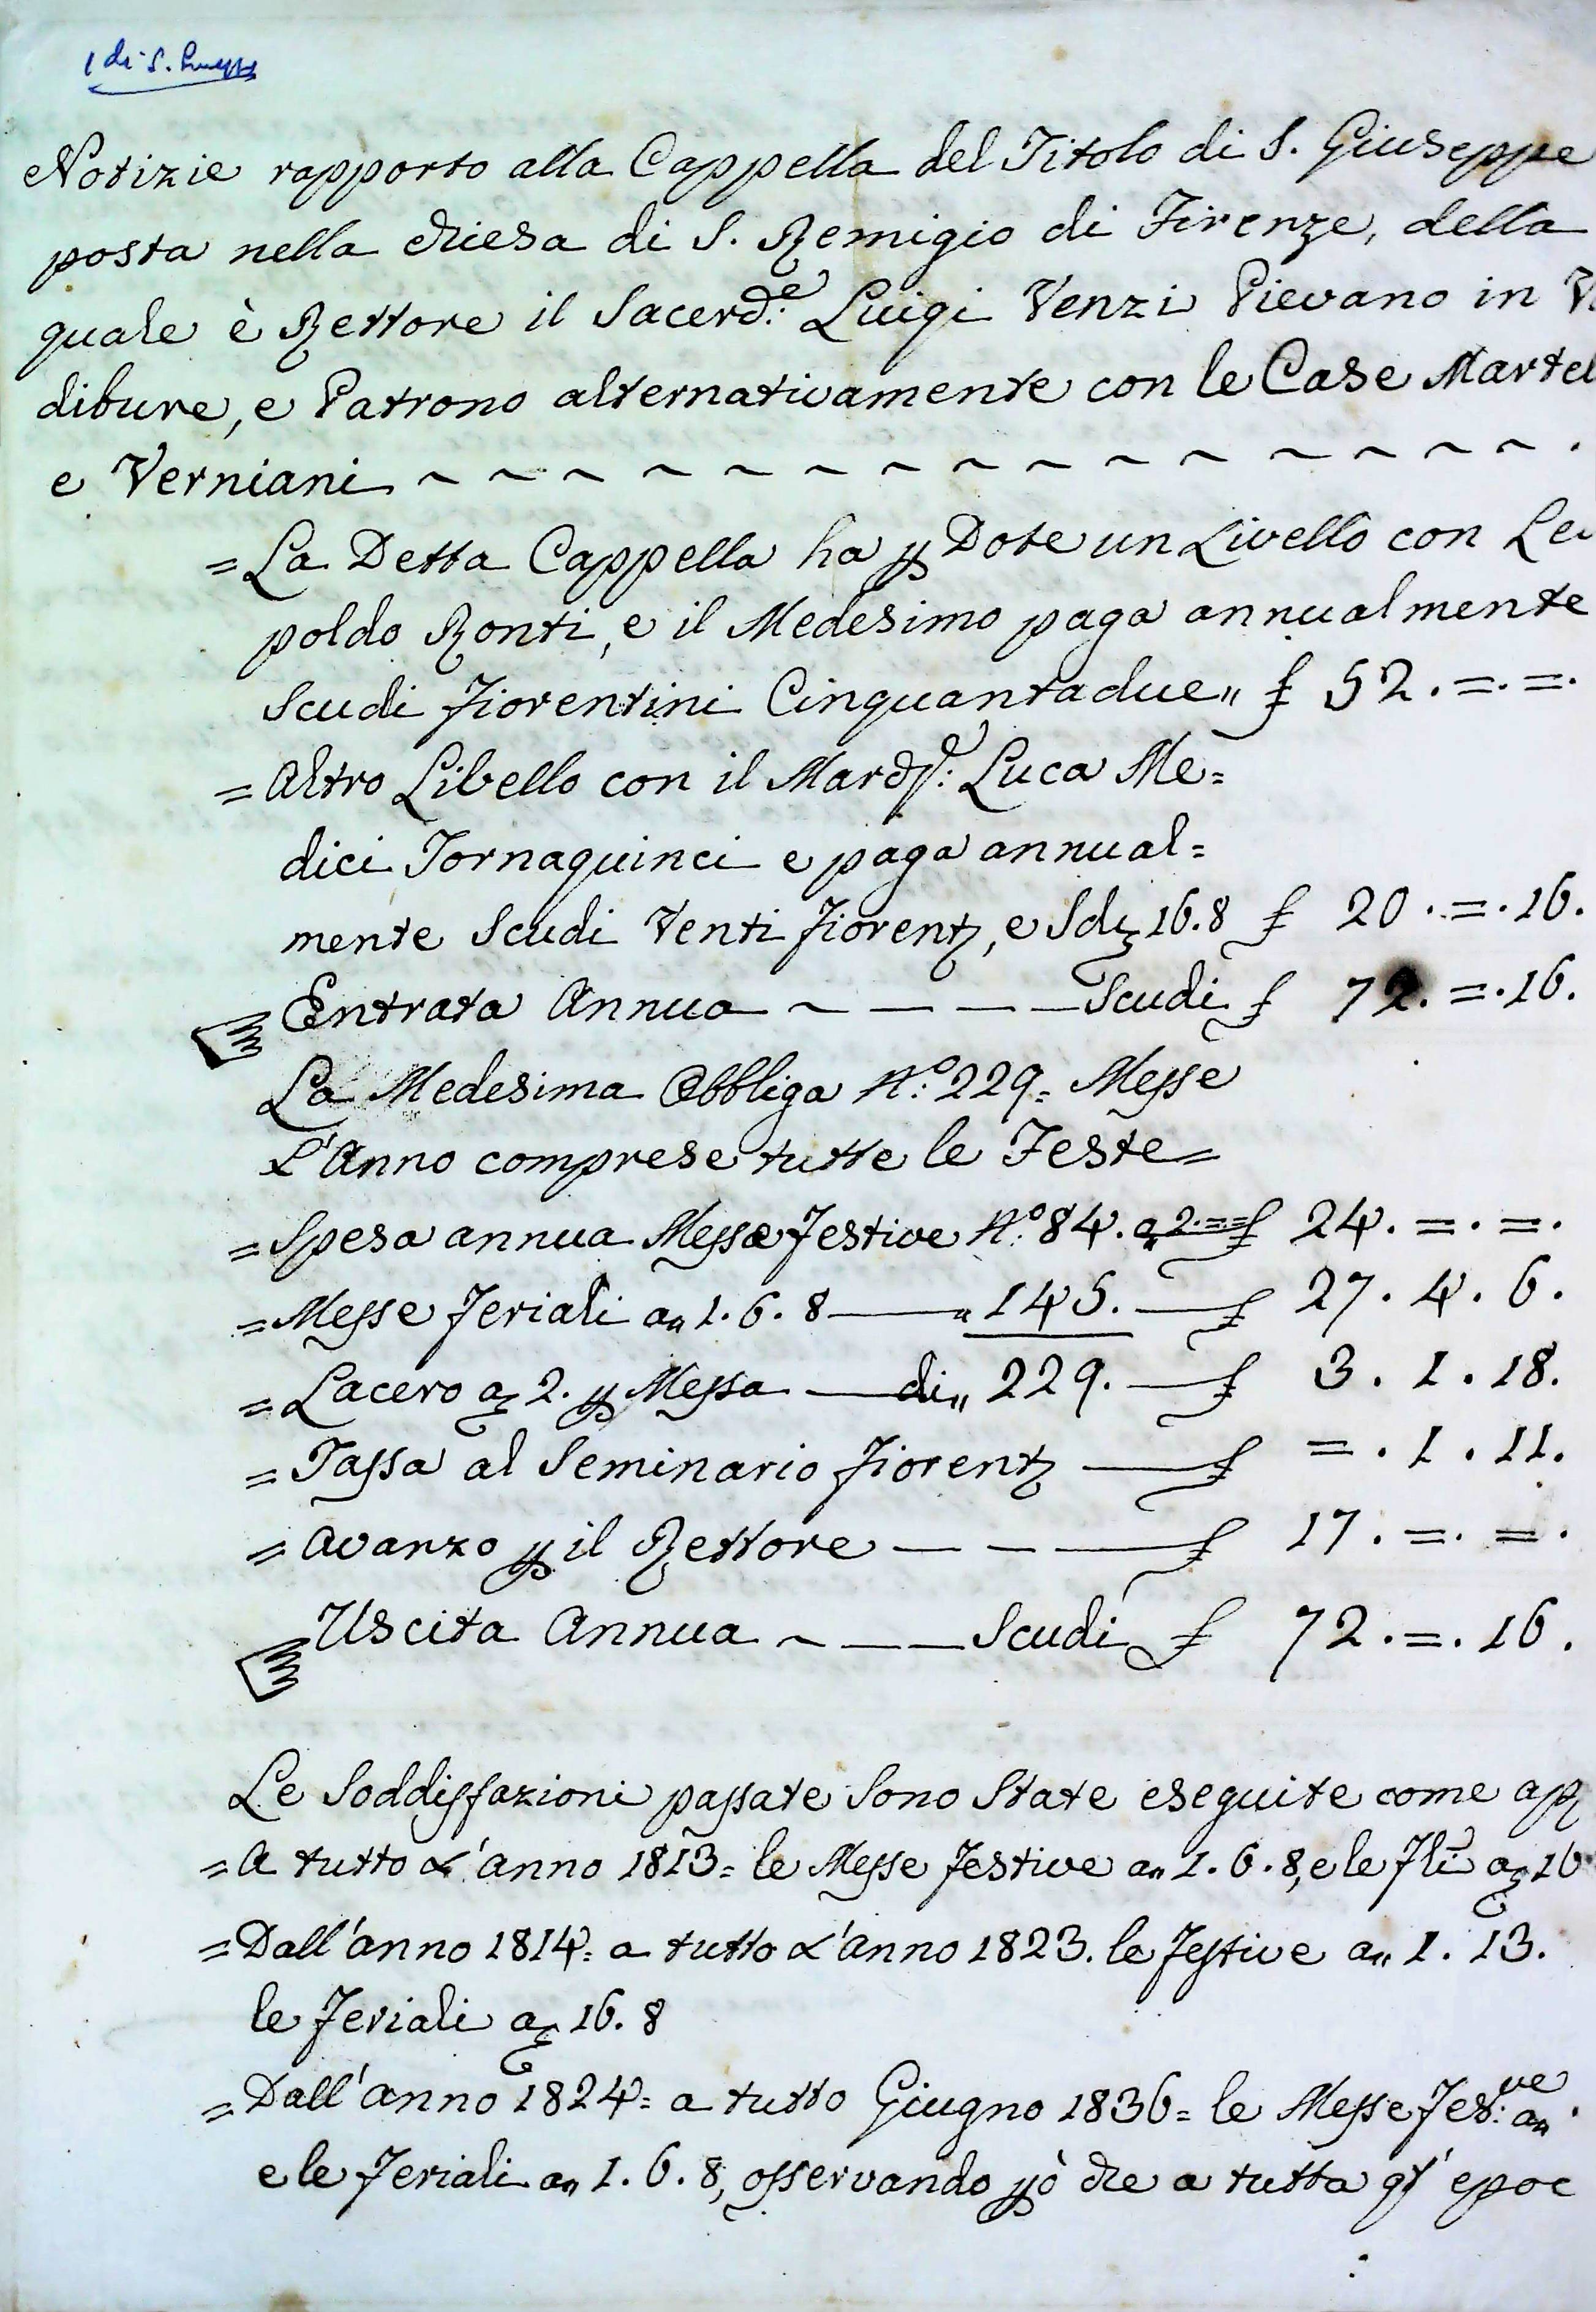 di S.
Notizie rapporto alla Cappella del Titolo di S. Giuseppe
posta nella Chiesa di S. Remigio di Firenze, della
quale è Rettore il Sacerd:e Luigi Venzi Pievano in V
dibure, e Patrono alternativamente con le Case Martel
e Verniani ~ ~ ~ ~ ~ ~ ~ ~ ~ ~ ~ ~ ~ ~ ~
= La Detta Cappella ha p Dote un Livello con Leo
poldo Ronti, e il Medesimo paga annualmente
Scudi Fiorentini Cinquantadue „ £ 52 . = . = .
= Altro Libello con il March: Luca Me=
dici Tornaquinci e paga annual=
mente Scudi Venti Fiorent, e Sdi 16.8 £ 20 . = . 16.
Entrata Annua ~ — — — Scudi £ 72. = . 16.
La Medesima Obbliga N:o 229 = Messe
L'Anno comprese tutte le Feste =
= Spesa annua Messe Festive N:o 84. a 2. = = £ 24. = . = .
= Messe Feriali a„ 1. 6. 8 — „ 145. — £ 27. 4. 6.
= Lacero a 2. p Messa — di„ 229. — £ 3. 1. 18.
= Tassa al Seminario Fiorent — £ = . 1. 11.
= Avanzo p il Rettore — — — £ 17. = . = .
Uscita Annua ~ — — Scudi £ 72. = . 16.
Le Soddisfazioni passate Sono State eseguite come ap
= A tutto L'anno 1813 = le Messe Festive a„ 1. 6. 8, e le Fli a 16
= Dall'anno 1814 = a tutto L'anno 1823. le Festive a„ 1. 13.
le Feriali a 16. 8
= Dall'anno 1824 = a tutto Giugno 1836 = le Messe Fes:ve a„
e le Feriali a„ 1. 6. 8, osservando pò che a tutta qt' epoc